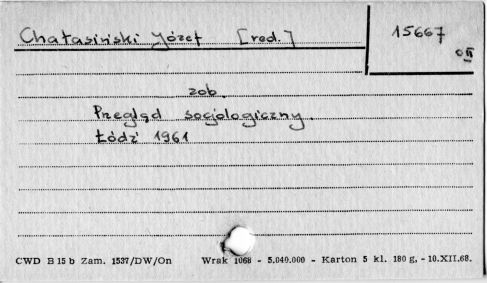 Chałasiński Józef [red.]
15667
zob.
Przegląd socjologiczny.
Łódź 1961
CWD B 15 b Zam. 1537/DW/On Wrak 1068 - 5.040.000 - Karton 5 kl. 180 g, - 10.XII.68.